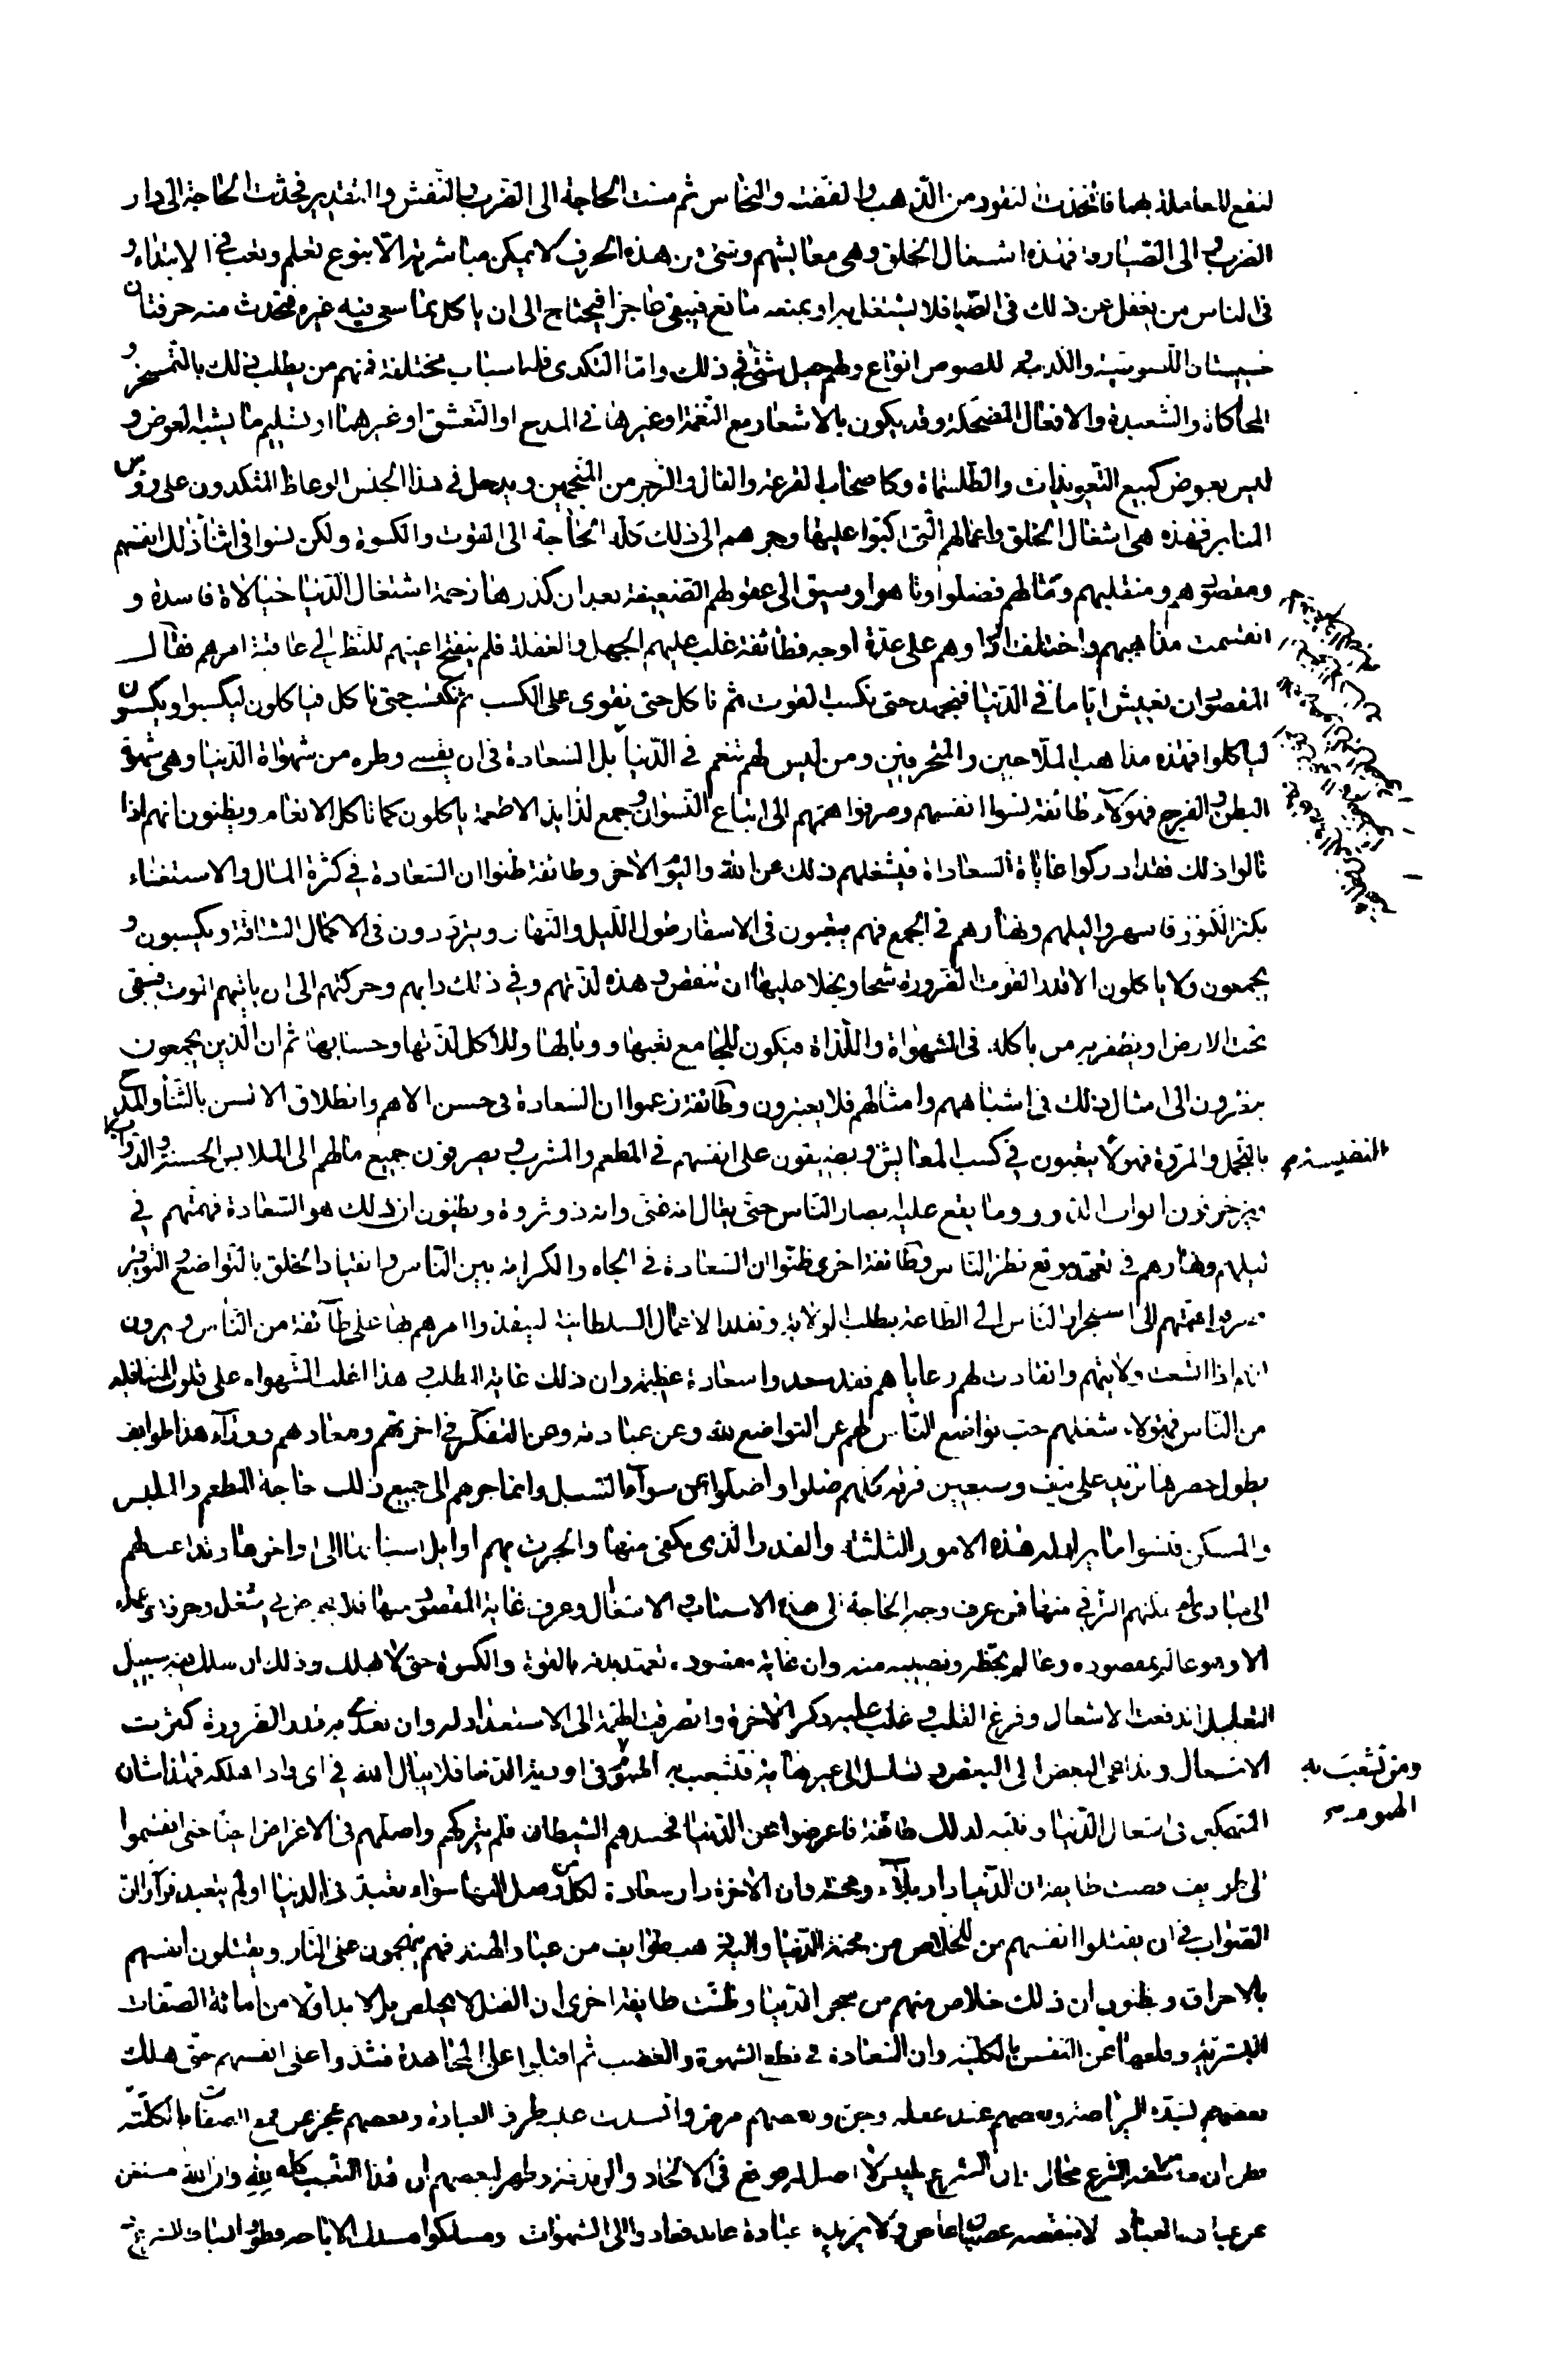 لنفع المعاملة بهما فاتخذت النقود من الذهب والفضة والنحاس ثم مست الحاجة الى الضرب والنقش والتقدير فحدثت الحاجة الى دار
الضرب والى الصيارفة فهذه اشغال الخلق وهى معايشهم وشئ من هذه الحرف لا يمكن مباشرتها الا بنوع تعلم وتعب فى الابتداء و
فى الناس من يغفل عن ذلك فى الصبا فلا يشتغل به او يمنعه مانع فيبقى عاجزا فيحتاج الى ان ياكل مما سعى فيه غيره فتحدث منه حرفتان
خسيستان اللصوصية والكدية للصوص انواع ولهم حيل شتى فى ذلك واما التكدى فله اسباب مختلفة فمنهم من يطلب ذلك بالتمسخر و
المحاكاة والشعبدة والافعال المضحكة وقد يكون بالاشعار مع النغمة وغيرها فى المدح او التعشق او غيرهما او تسليم ما يشبه العوض و
ليس بعوض كبيع التعويذات والطلسمات وكاصحاب القرعة والفال والزجر من المنجمين ويدخل فى هذا الجنس الوعاظ المتكدون على رؤس
المنابر فهذه هى اشغال الخلق واعمالهم التى اكبوا عليها وجرهم الى ذلك كله الحاجة الى القوت والكسوة ولكن نسوا فى اثناء ذلك انفسهم
ومقصودهم ومنقلبهم ومآلهم فضلوا وتاهوا وسبق الى عقولهم الضعيفة بعد ان كدرها زحمة اشتغال الدنيا خيالات فاسدة و
انقسمت مذاهبهم واختلفت اراؤهم على عدة اوجه فطائفة غلب عليهم الجهل والغفلة فلم ينفتح اعينهم للنظر الى عاقبة امرهم فقالـــ
المقصود ان نعيش اياما فى الدنيا فنجهد حتى نكسب القوت ثم ناكل حتى نقوى على الكسب ثم نكتسب حتى ناكل فياكلون ليكسبوا ويكسبون
لياكلوا فهذه مذاهب الملاحين والمحترفين ومن ليس لهم تنعم فى الدنيا بل السعادة فى ان يقضى وطره من شهوات الدنيا وهى شهوة
البطن والفرج فهؤلاء طائفة نسوا انفسهم وصرفوا هممهم الى اتباع النسوان وجمع لذايذ الاطعمة ياكلون كما تاكل الانعام ويظنون انهم اذا
نالوا ذلك فقد ادركوا غايات السعادات فيشغلهم ذلك عن الله واليوم الاخر وطائفة ظنوا ان السعادة فى كثرة المال والاستغناء
بكثر الكنوز فاسهروا ليلهم ونهارهم فى الجمع فهم يتعبون فى الاسفار طول الليل والنهار ويترددون فى الاعمال الشاقة ويكسبون و
يجمعون ولا ياكلون الا قدر القوت الضرورة شحا وبخلا عليها ان تنقص وهذه لذتهم وفى ذلك دابهم وحركتهم الى ان ياتيهم الموت فيبقى
تحت الارض او يظفر به من ياكله فى الشهوات واللذات فيكون للجامع تعبها ووبالها وللاكل لذتها وحسابها ثم ان الذين يجمعون
ينظرون الى امثال ذلك فى اشباههم وامثالهم فلا يعتبرون وطائفة زعموا ان السعادة فى حسن الاسم وانطلاق الالسن بالثناء والمدح
بالتجمل والمروة فهؤلاء يتعبون فى كسب المعايش ويضيقون على انفسهم فى المطعم والمشرب ويصرفون جميع مالهم الى الملابس الحسنة والدواب
النفيسة
ويزخرفون ابواب الدور وما يقع عليه ابصار الناس حتى يقال انه غنى وانه ذو ثروة ويظنون ان ذلك هو السعادة فهمتهم فى
ليلهم ونهارهم فى تعهد موقع نظر الناس وطائفة اخرى ظنوا ان السعادة فى الجاه والكرامة بين الناس وانقياد الخلق بالتواضع والتوقير
فصرفوا همتهم الى استجرار الناس الى الطاعة بطلب الولاية وتقلد الاعمال السلطانية لينفذوا امرهم بها على طائفة من الناس ويرون
انهم اذا اتسعت ولايتهم وانقادت لهم رعاياهم فقد سعدوا سعادة عظيمة وان ذلك غاية المطلب هذا اغلب الشهوات على قلوب المتغافلين
من الناس فهؤلاء شغلهم حب تواضع الناس لهم عن التواضع لله وعن عبادته وعن التفكر فى اخرتهم ومعادهم ووراء هذا طوايف
يطول حصرها تزيد على نيف وسبعين فرقة كلهم ضلوا واضلوا عن سواء السبيل وانما جرهم الى جميع ذلك حاجة المطعم والملبس
والمسكن فنسوا ما يراد له هذه الامور الثلثة والقدر الذى يكفى منها وانجرت بهم اوايل اسبابها الى اواخرها وتداعى لهم
الى مبادى لم يمكنهم الترقى منها فمن عرف وجه الحاجة الى هذه الاسباب والاشغال وعرف غاية المقصود منها فلا يخوض فى شغل وحرفة وعمل
الا وهو عالم بمقصوده وعالم بحظه ونصيبه منه وان غاية مقصوده تعهد بدنه بالقوت والكسوة حتى لا يهلك وذلك ان سلك فيه سبيل
التقليل اندفعت الاشغال وفرغ القلب وغلب عليه ذكر الاخرة وانصرفت الهمة الى الاستعداد له وان تعدى به قدر الضرورة كثرت
الاشغال وتداعى البعض الى البعض وتسلسل الى غير نهاية فتشعب به الهموم
ومن تشعبت به
الهموم
فى اودية الدنيا فلا يبال الله فى اى واد اهلكه فهذا شان
المنهمكين فى اشغال الدنيا وتنبه لذلك طائفة فاعرضوا عن الدنيا فحسدهم الشيطان فلم يتركهم واضلهم فى الاعراض ايضا حتى انقسموا
الى طوايف فظنت طايفة ان الدنيا دار بلاء ومحنة وان الاخرة دار سعادة لكل من وصل اليها سواء تعبد فى الدنيا او لم يتعبد فراوا ان
الصواب فى ان يقتلوا انفسهم من للخلاص من محنة الدنيا واليه ذهب طوايف من عباد الهند فهم يتهجمون على النار ويقتلون انفسهم
بالاحراق ويظنون ان ذلك خلاص منهم من سجن الدنيا وظنت طايفة اخرى ان القتل لا يخلص بل لا بد اولا من اماتة الصفات
البشرية وقلعها عن النفس بالكلية وان السعادة فى قطع الشهوة والغضب ثم اقبلوا على المجاهدة فشددوا على انفسهم حتى هلك
بعضهم لشدة الرياضة وبعضهم فسد عقله وجن وبعضهم مرض وانسدت عليه طرق العبادة وبعضهم عجز عن قمع الصفات بالكلية
فظن ان ما كلفه الشرع محال وان الشرع تلبيس لا اصل له فوقع فى الالحاد والزندقة وظهر لبعضهم ان هذا التعب كله لله وان الله مستغن
عن عبادة العباد لا ينقصه عصيان عاص ولا يزيده عبادة عابد فعادوا الى الشهوات وسلكوا مسلك الاباحة وطووا بساط الشرع